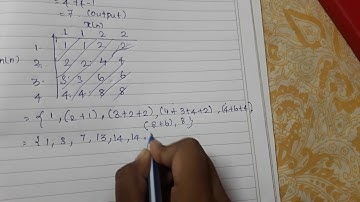 = 4+4-1
= 7 (output)
x(n)
1 1 2 2
h(n) 1 1 1 2 2
2 2 2 4 4
3 3 3 6 6
4 4 4 8 8
= { 1, (2+1), (3+2+2), (4+3+4+2), (4+6+4),
(8+6), 8 }
= { 1, 3, 7, 13, 14, 14,